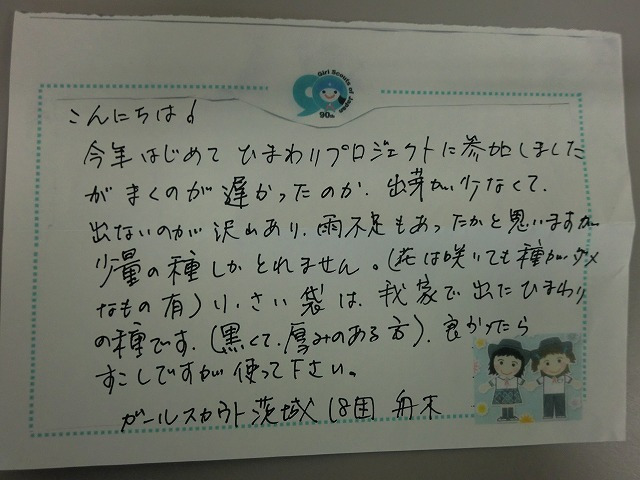 Girl Scouts of Japan
90th
こんにちは!
今年はじめて ひまわりプロジェクトに参加しました
がまくのが遅かったのか、出芽が少なくて、
出ないのが沢山あり、雨不足もあったかと思いますが
少量の種しかとれません。(花は咲いても種がダメ
なもの有) 小さい袋は、我家で出たひまわり
の種です、(黒くて、厚みのある方)、良かったら
すこしですが使って下さい。
ガールスカウト茨城 18団 舟木